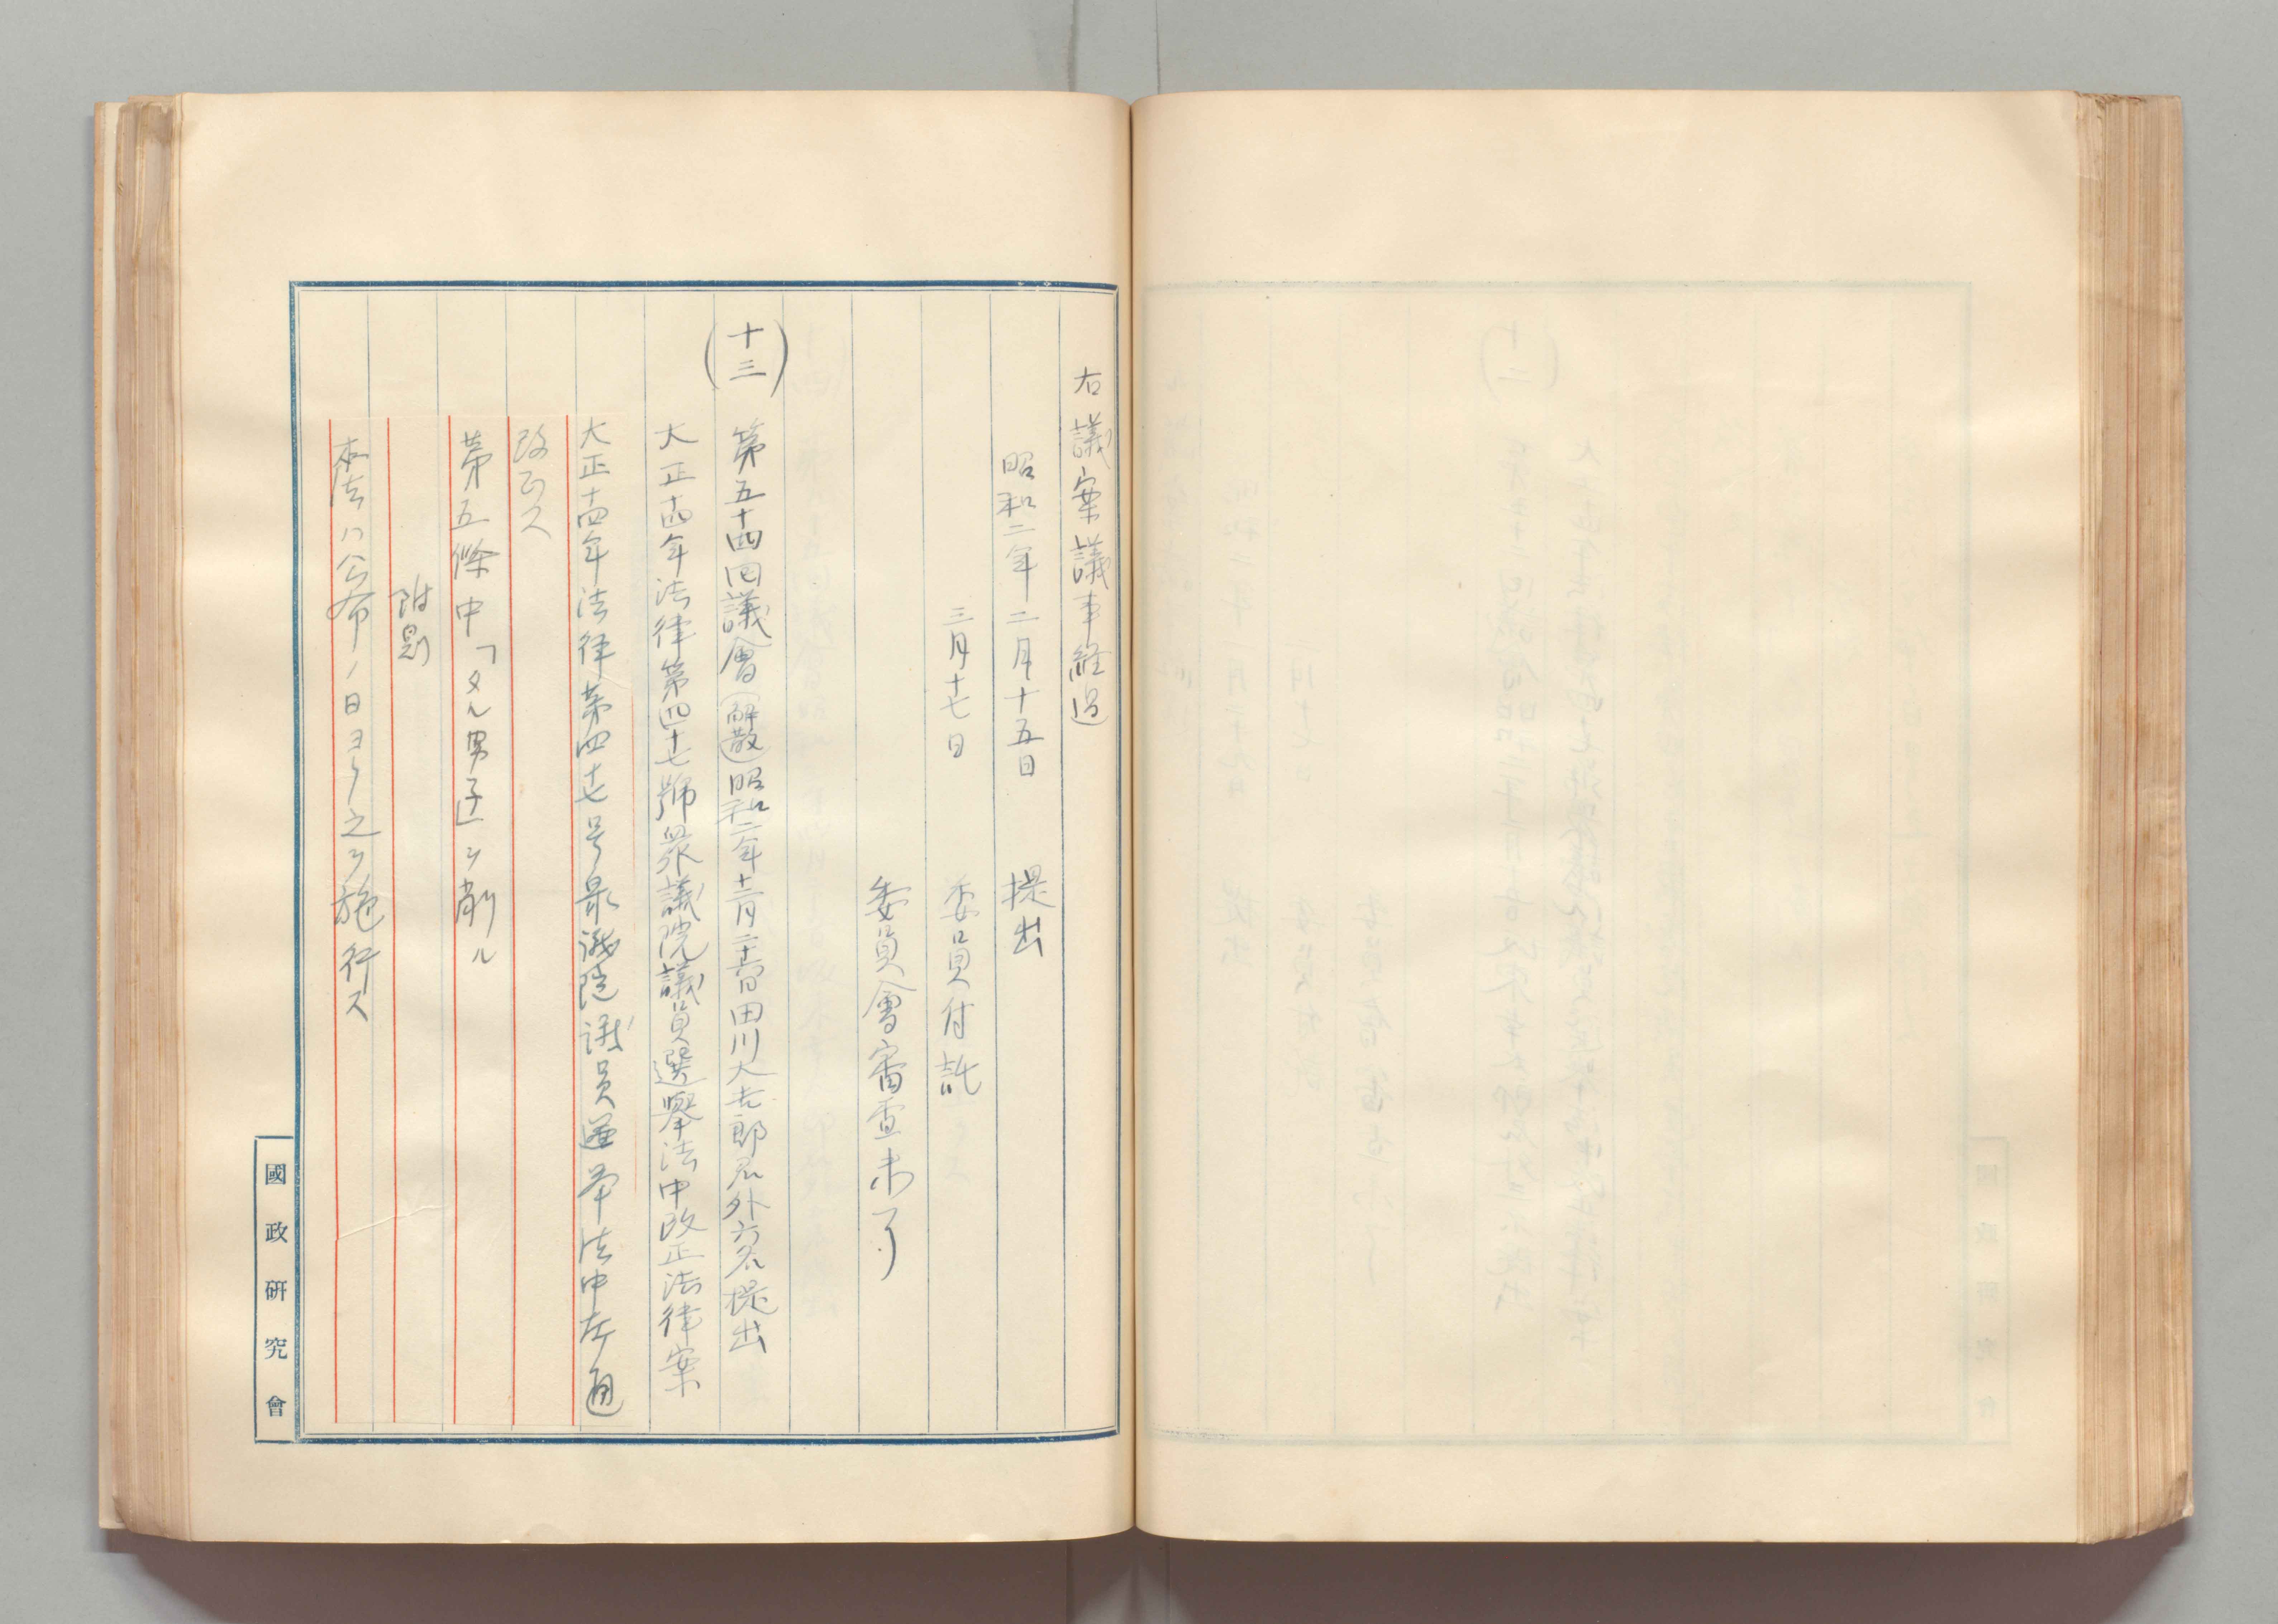 右議案議事経過
昭和二年二月十五日 提出
三月十七日 委員付託
委員會審査未了
(十三) 第五十四回議會(解散)昭和二年十二月二十六日田川大吉郎君外六名提出
大正十四年法律第四十七號衆議院議員選擧法中改正法律案
大正十四年法律第四十七号衆議院議員選挙法中左ノ通
改正ス
第五條中「タル男子」ヲ削ル
附則
本法ハ公布ノ日ヨリ之ヲ施行ス
國政研究會